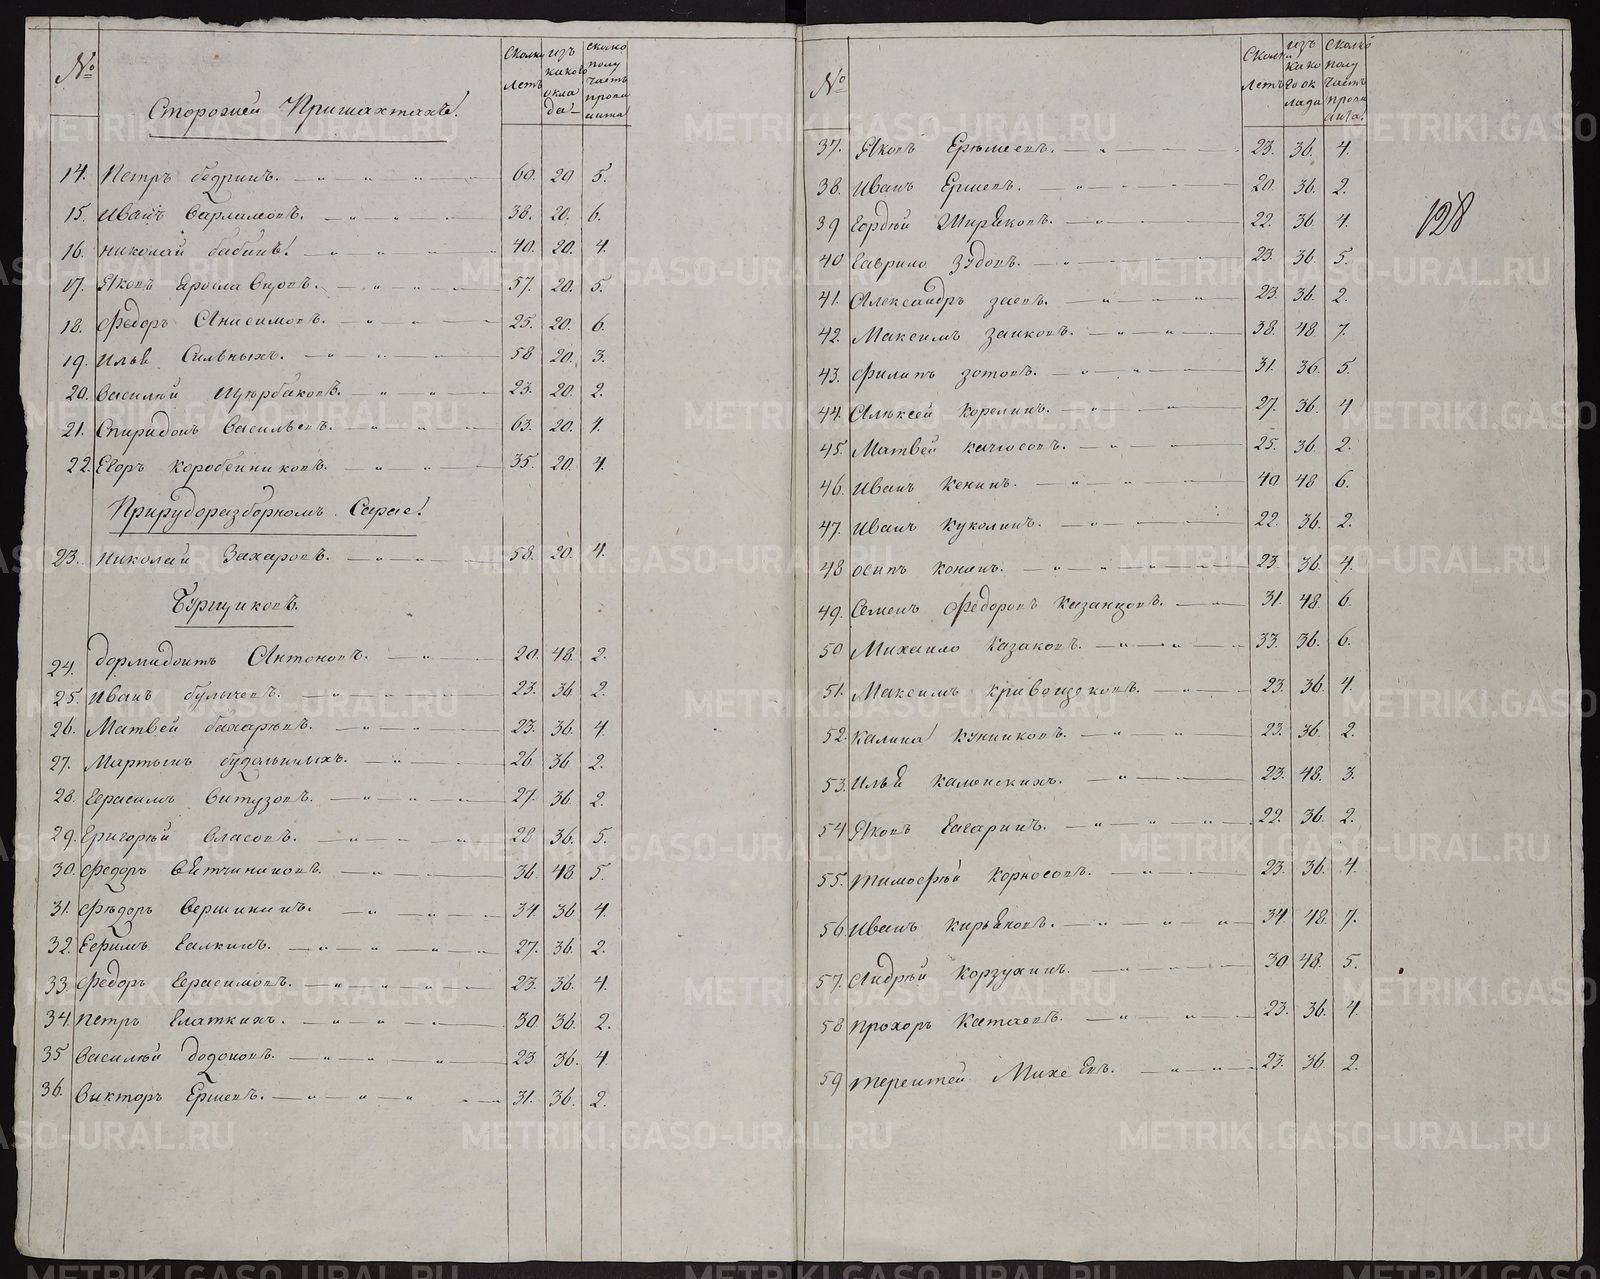 № Сколко Летъ изъ каково окла да сколко полу чаетъ прови анта
Сторожей Пришахтахъ
14. Петръ бедринъ. 60. 20 5.
15. Иванъ Варламовъ. 38. 20. 6.
16. Николай бабинъ 40. 20. 4.
17. Яковъ Ярославцовъ. 57. 20. 5.
18. Федоръ Анисимовъ. 25. 20. 6.
19. Илья Сильныхъ. 58 20. 3.
20. Василей Щербаковъ. 23. 20. 2.
21. Спиридонъ Васильевъ. 63. 20. 4.
22. Егоръ Коробейниковъ. 35. 20. 4.
Прирудоразборномъ Сарае
23. Николай Захаровъ. 58. 20. 4.
Бурщиковъ.
24. дормидонтъ Антоновъ. 20. 48. 2.
25. Иванъ булычевъ. 23. 36 2.
26. Матвей бахаревъ. 23. 36. 4.
27. Мартынъ 26 36 2.
28. Герасимъ Витузовъ. 27. 36. 2.
29. Григорей Власовъ. 28 36. 5.
30. Федоръ Вятчининовъ. 36. 48. 5.
31. Федоръ Вершининъ. 34 36 4.
32. Ефимъ Галкинъ. 27. 36. 2.
33. Федоръ Герасимовъ. 23. 36. 4.
34. Петръ Глаткихъ. 30 36. 2.
35 Василей Додоновъ. 23. 36. 4
36. Викторъ Ершевъ. 31. 36. 2.
№ Сколко Летъ изъ како го ок лада Сколко полу чаетъ прови анта
37. Яковъ Еремеевъ. 23. 36. 4.
128
38. Иванъ Ершевъ. 20. 36. 2.
39 Гордей Ширяковъ. 22. 36 4.
40 Гаврило Зудовъ. 23. 36. 5.
41. Александръ заевъ. 23. 36. 2.
42. Максимъ Заиковъ. 38. 48 7.
43. Филипъ зотовъ. 31. 36. 5.
44. Алексей Корелинъ. 27. 36. 4
45. Матвей качюсовъ. 25. 36. 2.
46. Иванъ Кенинъ. 40 48 6.
47. Иванъ Куколинъ. 22. 36. 2.
48 осипъ конинъ. 23. 36. 4.
49. Семенъ Федоровъ Казанцовъ. 31. 48. 6.
50 Михаило Казаковъ. 33. 36. 6.
51. Максимъ кривощековъ. 23. 36 4.
52. Калина Кунщиковъ. 23. 36. 2.
53. Илья каменскихъ. 23. 48. 3.
54 Яковъ Гагаринъ. 22. 36 2.
55. Тимофей Корносовъ. 23. 36. 4
56 Иванъ кирьяковъ. 34 48. 7.
57. Андрей Корзухинъ. 30 48. 5.
58 Прохоръ Катаевъ. 23. 36. 4.
59 терентей Михеевъ. 23. 36 2.
METRIKI.GASO-URAL.RU